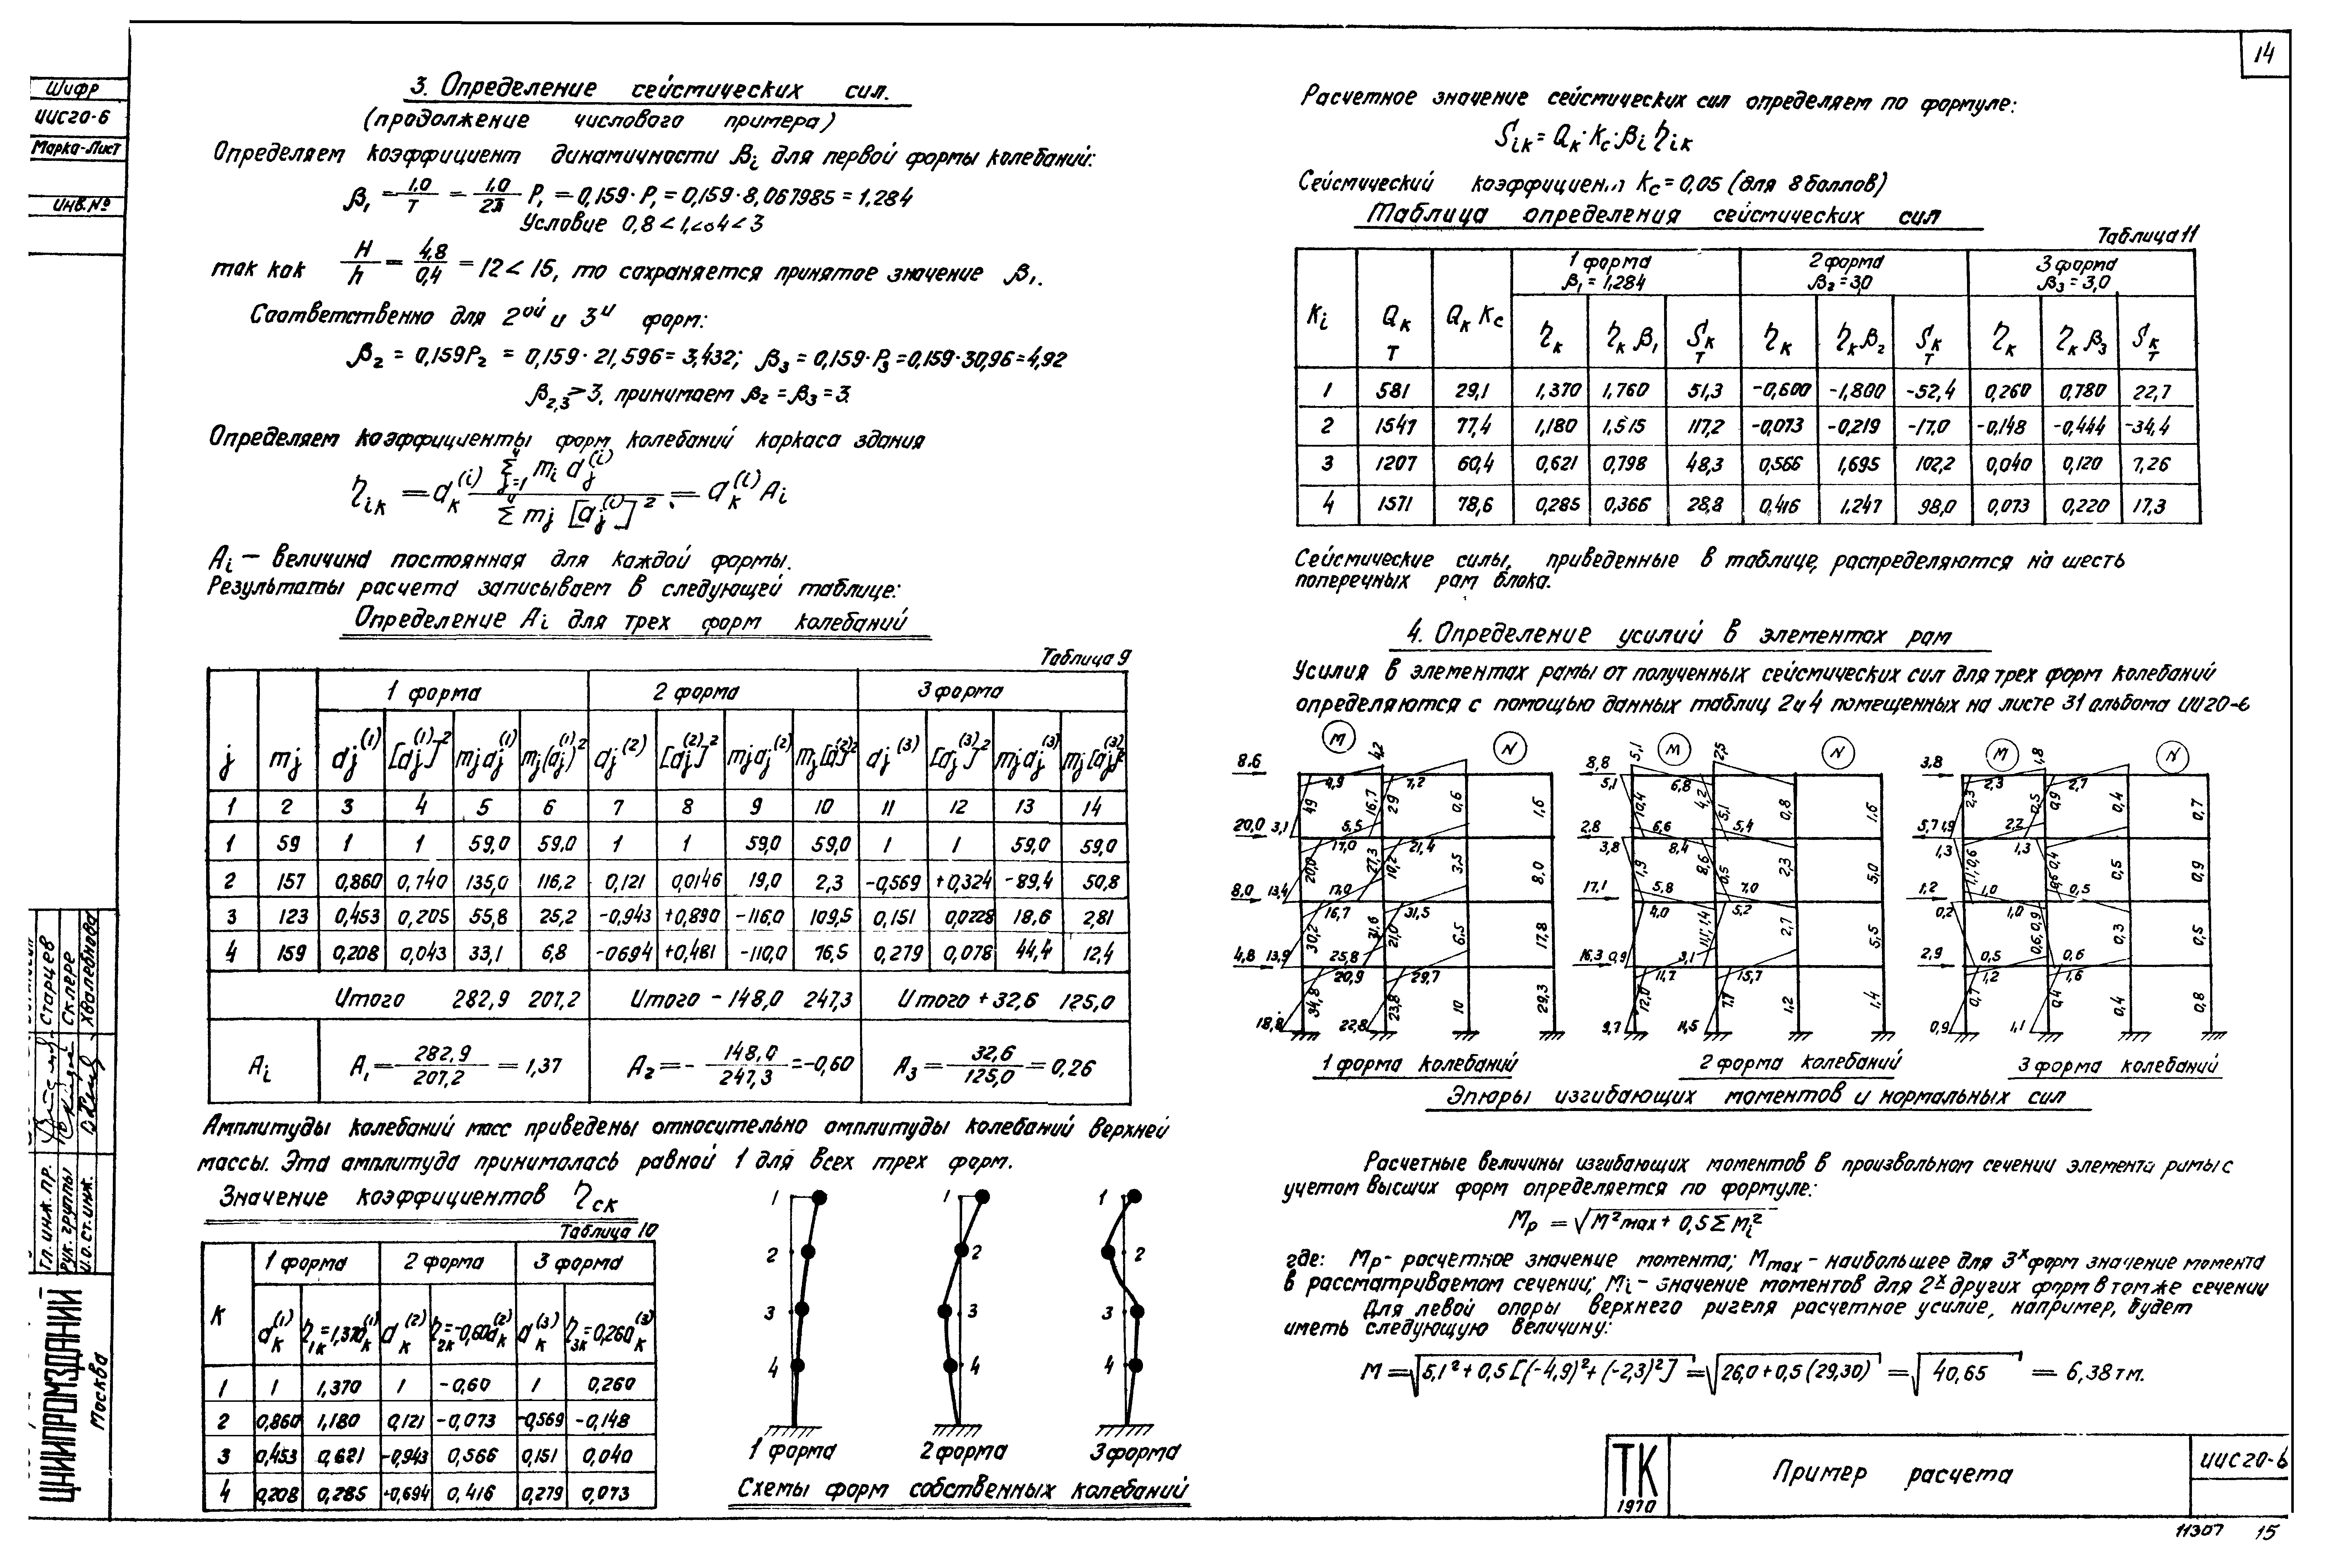 14
Шифр
ИИС20-6
Марка-Лист
Инв.№
3. Определение сейсмических сил.
(продолжение числового примера)
Определяем коэффициент динамичности βi для первой формы колебаний:
β₁ = 1,0/T = 1,0/2π P₁ = 0,159·P₁ = 0,159·8,067985 = 1,284
Условие 0,8 < 1,284 < 3
так как H/h = 4,8/0,4 = 12 < 15, то сохраняется принятое значение β₁.
Соответственно для 2ой и 3й форм:
β₂ = 0,159P₂ = 0,159·21,596 = 3,432; β₃ = 0,159·P₃ = 0,159·30,96 = 4,92
β₂,₃ > 3, принимаем β₂ = β₃ = 3.
Определяем коэффициенты форм колебаний каркаса здания
ηik = dk⁽ⁱ⁾ Σ⁴j=1 mi dj⁽ⁱ⁾ / Σ⁴ mj [dj⁽ⁱ⁾]² = dk⁽ⁱ⁾ Ai
Ai – величина постоянная для каждой формы.
Результаты расчета записываем в следующей таблице:
Определение Ai для трех форм колебаний
Таблица 9
j mj 1 форма 2 форма 3 форма
dj⁽¹⁾ [dj⁽¹⁾]² mjdj⁽¹⁾ mj(dj⁽¹⁾)² dj⁽²⁾ [dj⁽²⁾]² mjdj⁽²⁾ mj[dj⁽²⁾]² dj⁽³⁾ [dj⁽³⁾]² mjdj⁽³⁾ mj[dj⁽³⁾]²
1 2 3 4 5 6 7 8 9 10 11 12 13 14
1 59 1 1 59,0 59,0 1 1 59,0 59,0 1 1 59,0 59,0
2 157 0,860 0,740 135,0 116,2 0,121 0,0146 19,0 2,3 -0,569 +0,324 -89,4 50,8
3 123 0,453 0,205 55,8 25,2 -0,943 +0,890 -116,0 109,5 0,151 0,0228 18,6 2,81
4 159 0,208 0,043 33,1 6,8 -0694 +0,481 -110,0 76,5 0,279 0,078 44,4 12,4
Итого 282,9 207,2 Итого -148,0 247,3 Итого +32,6 125,0
Ai A₁ = 282,9/207,2 = 1,37 A₂ = - 148,0/247,3 = -0,60 A₃ = 32,6/125,0 = 0,26
Амплитуды колебаний масс приведены относительно амплитуды колебаний верхней
массы. Эта амплитуда принималась равной 1 для всех трех форм.
Значение коэффициентов ηск
Таблица 10
К 1 форма 2 форма 3 форма
dк⁽¹⁾ η1к=1,37dк⁽¹⁾ dк⁽²⁾ η2к=-0,60dк⁽²⁾ dк⁽³⁾ η3к=0,26dк⁽³⁾
1 1 1,370 1 -0,60 1 0,260
2 0,860 1,180 0,121 -0,073 -0,569 -0,148
3 0,453 0,621 -0,943 0,566 0,151 0,040
4 0,208 0,285 -0,694 0,416 0,279 0,073
1 1 1
2 2 2
3 3 3
4 4 4
1 форма 2 форма 3 форма
Схемы форм собственных колебаний
Расчетное значение сейсмических сил определяем по формуле:
Siк = Qк·Kc·βi ηiк
Сейсмический коэффициент Kc = 0,05 (для 8 баллов)
Таблица определения сейсмических сил
Таблица 11
Ki Qк т Qк Kc 1 форма β₁ = 1,284 2 форма β₂ = 3,0 3 форма β₃ = 3,0
ηк ηкβ₁ Sк т ηк ηкβ₂ Sк т ηк ηкβ₃ Sк т
1 581 29,1 1,370 1,760 51,3 -0,600 -1,800 -52,4 0,260 0,780 22,7
2 1547 77,4 1,180 1,515 117,2 -0,073 -0,219 -17,0 -0,148 -0,444 -34,4
3 1207 60,4 0,621 0,798 48,3 0,566 1,695 102,2 0,040 0,120 7,26
4 1571 78,6 0,285 0,366 28,8 0,416 1,247 98,0 0,073 0,220 17,3
Сейсмические силы, приведенные в таблице, распределяются на шесть
поперечных рам блока.
4. Определение усилий в элементах рам
Усилия в элементах рамы от полученных сейсмических сил для трех форм колебаний
определяются с помощью данных таблиц 2 и 4 помещенных на листе 31 альбома ИИ20-6
M N M N M N
8.6 4,9 4,2 7,2 49 16,7 29 0,6 1,6
20,0 3,1 5,5 17,0 21,4 20,0 27,3 10,2 3,5 8,0
8,0 13,4 17,0 16,7 31,5 30,2 31,6 21,0 6,5 17,8
4,8 13,9 25,8 20,9 29,7 34,8 23,8 10 29,3
18,8 22,8
8,8 5,1 5,1 6,8 2,5 10,4 4,2 5,1 0,8 1,6
2,8 3,8 6,6 8,4 5,4 1,9 8,6 0,5 2,3 5,0
17,1 5,8 4,0 7,0 5,2 11,1 1,4 2,7 5,5
16,3 0,9 3,1 11,7 15,7 12,0 7,7 1,2 1,4
9,7 14,5
3,8 2,3 1,8 2,7 2,3 0,5 0,9 0,4 0,7
5,7 1,9 2,2 1,3 1,3 1,1 0,6 0,4 0,6 0,5 0,9
1,2 0,2 1,0 1,0 0,5 0,6 0,9 0,3 0,5
2,9 0,5 1,2 0,6 1,6 0,7 0,4 0,4 0,8
0,9 1,1
1 форма колебаний 2 форма колебаний 3 форма колебаний
Эпюры изгибающих моментов и нормальных сил
Расчетные величины изгибающих моментов в произвольном сечении элемента рамы с
учетом высших форм определяется по формуле:
Mp = √M²max + 0,5 Σ Mi²
где: Mp - расчетное значение момента; Mmax - наибольшее для 3х форм значение момента
в рассматриваемом сечении; Mi - значение моментов для 2х других форм в том же сечении
Для левой опоры верхнего ригеля расчетное усилие, например, будет
иметь следующую величину:
M = √5,1² + 0,5 [(-4,9)² + (-2,3)²] = √26,0 + 0,5 (29,30) = √40,65 = 6,38 тм.
ТК
1970
Пример расчета
ИИС20-6
11307 15
Гл. инж. пр. Старцев
Рук. группы Склере
И.о. ст. инж. Хвалебнова
ЦНИИПРОМЗДАНИЙ
Москва